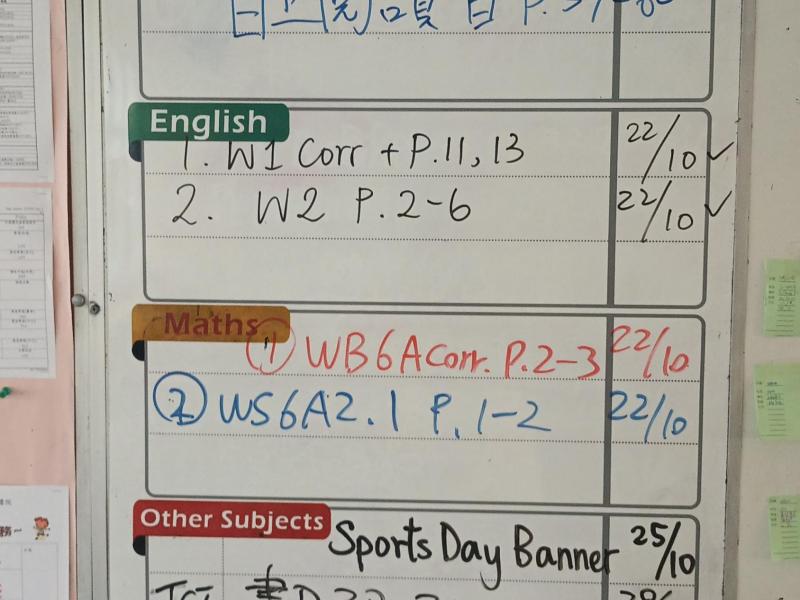 English
1. W1 Corr + P.11, 13 22/10 ✓
2. W2 P.2-6 22/10 ✓
Maths
① WB6A Corr. P.2-3 22/10
② WS6A2.1 P.1-2 22/10
Other Subjects
Sports Day Banner 25/10